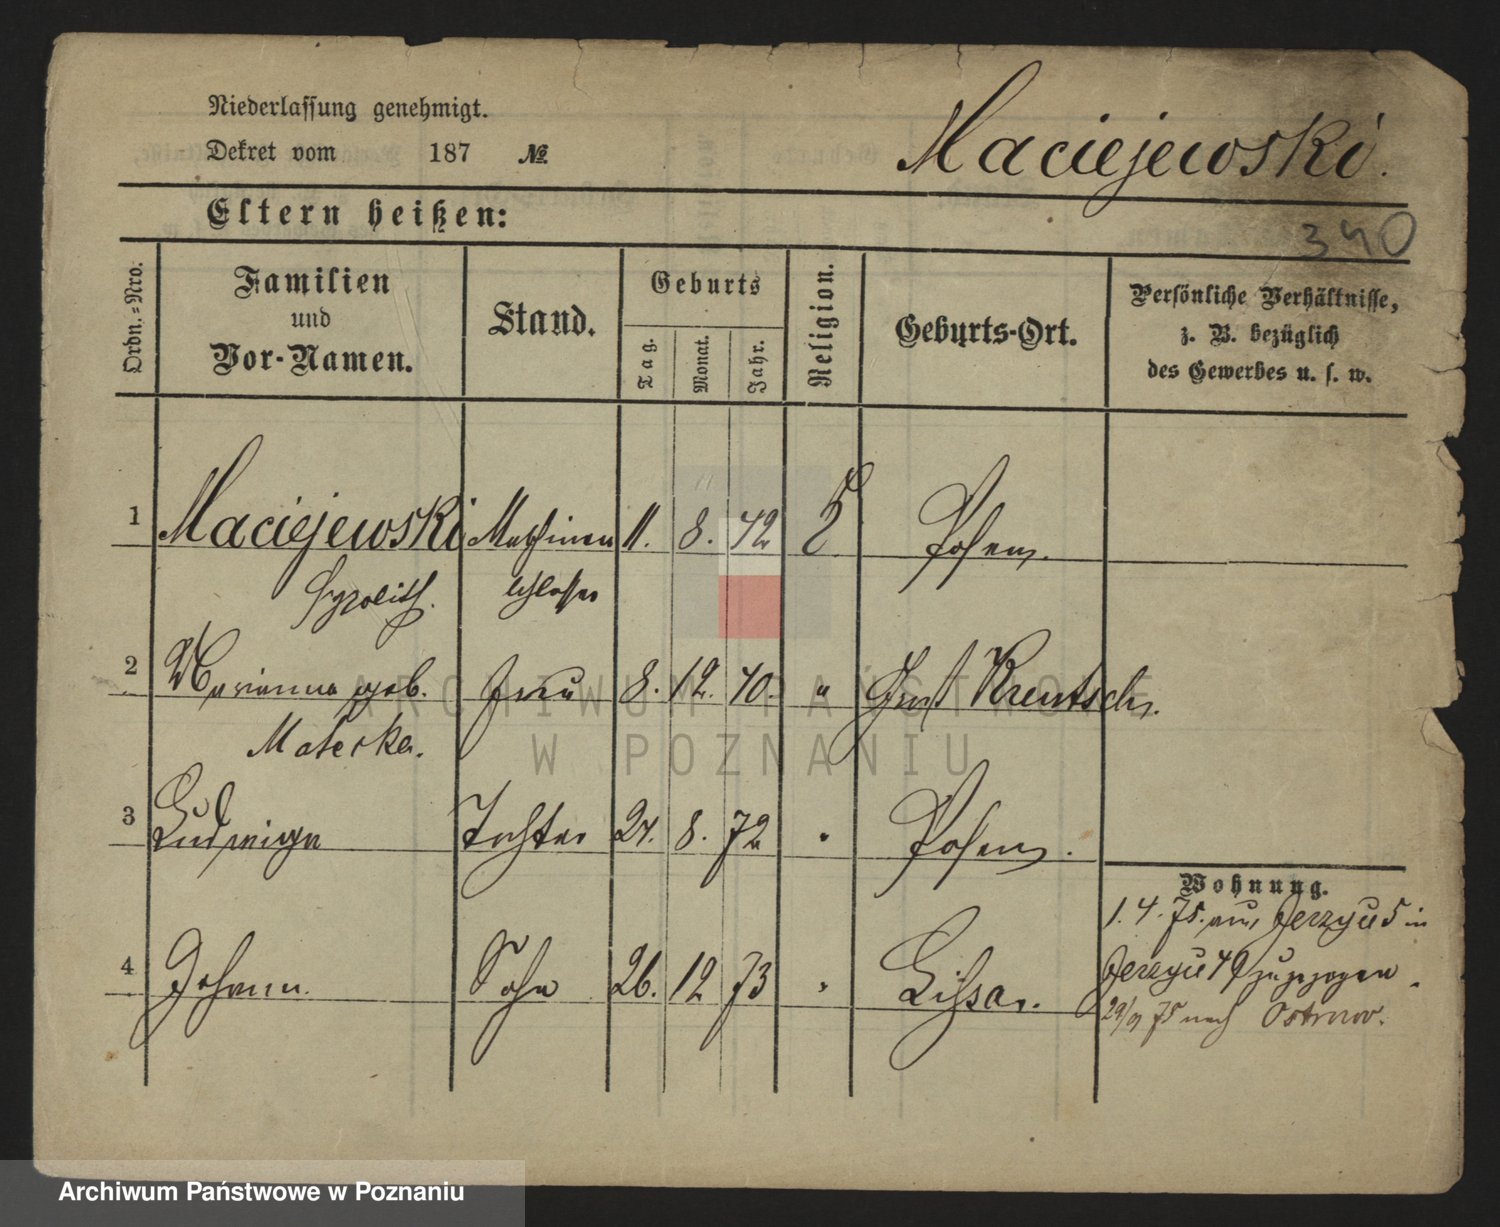 Niederlassung genehmigt.
Dekret vom 187 №
Maciejewski.
Eltern heißen:
340
Ordn.=Nro.
Familien
und
Vor-Namen.
Stand.
Geburts
Tag.
Monat.
Jahr.
Religion.
Geburts-Ort.
Persönliche Verhältnisse,
z. B. bezüglich
des Gewerbes u. s. w.
1 Maciejewski Maschinen 11. 8. 42 Posen.
Hypolith. schlosser
2 Marianna geb. Frau 8. 12. 40. " Groß Kreutsch.
Mateska.
3 Ludwiga Tochter 24. 8. 72 " Posen.
Wohnung.
1. 4. 75. aus Jerzyce 5 in
4 Johann. Sohn 26. 12 73 " Lissa.
Jerzyce 49 zugezogen.
29/9 75 nach Ostrowo.
ARCHIWUM PAŃSTWOWE
W POZNANIU
Archiwum Państwowe w Poznaniu